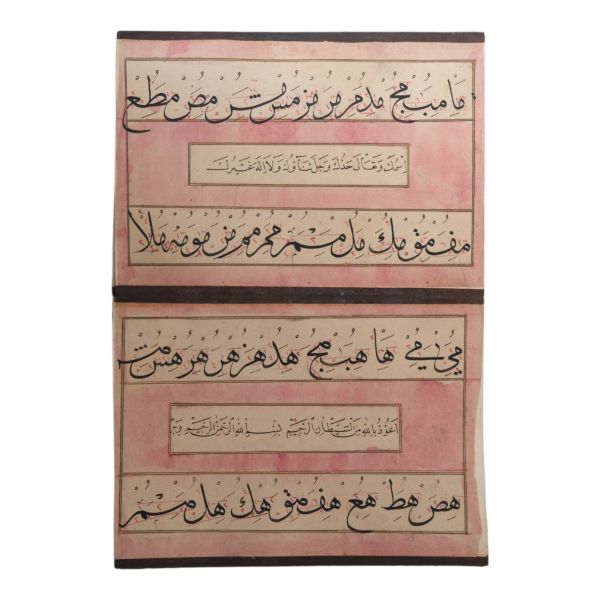 ما مب مج مد مر مر مس مص مط مع
اسمك وتعالى جدك وجل ثناؤك ولا اله غيرك
مف مق مك مل مم من مو مه ملا
مي مے ها هب هج هد هر هر هر هس
اعوذ بالله من الشيطان الرجيم بسم الله الرحمن الرحيم
هص هط هع هف هق هك هل